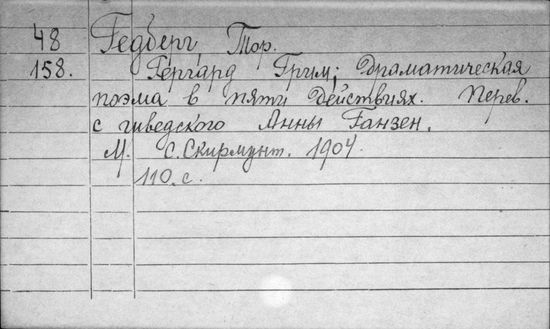 48 Гедберг, Тор.
158. Гергард Грим; драматическая
поэма в пяти действиях. Перев.
с шведского Анны Ганзен.
М. С. Скирмунт. 1904.
110. с.